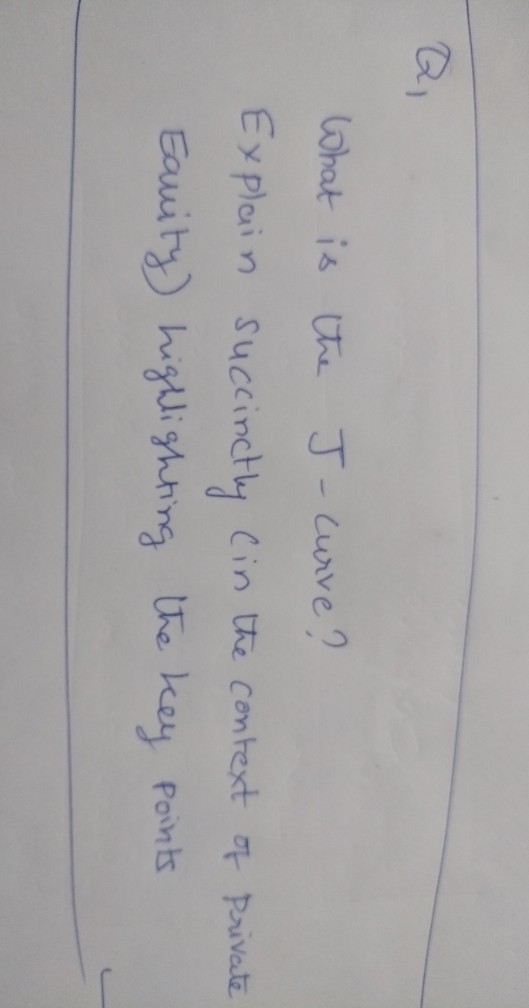 Q1
What is the J-curve?
Explain succinctly (in the context of Private
Equity) highlighting the key points